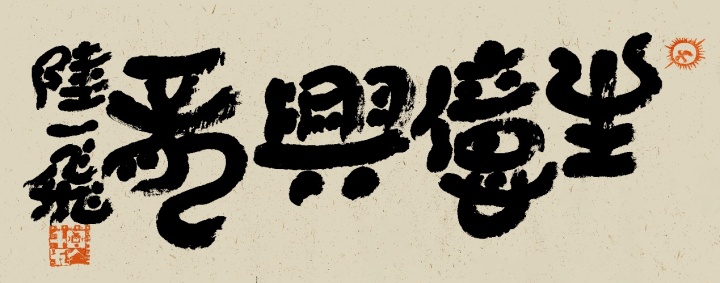 生億興秀
陸一飛